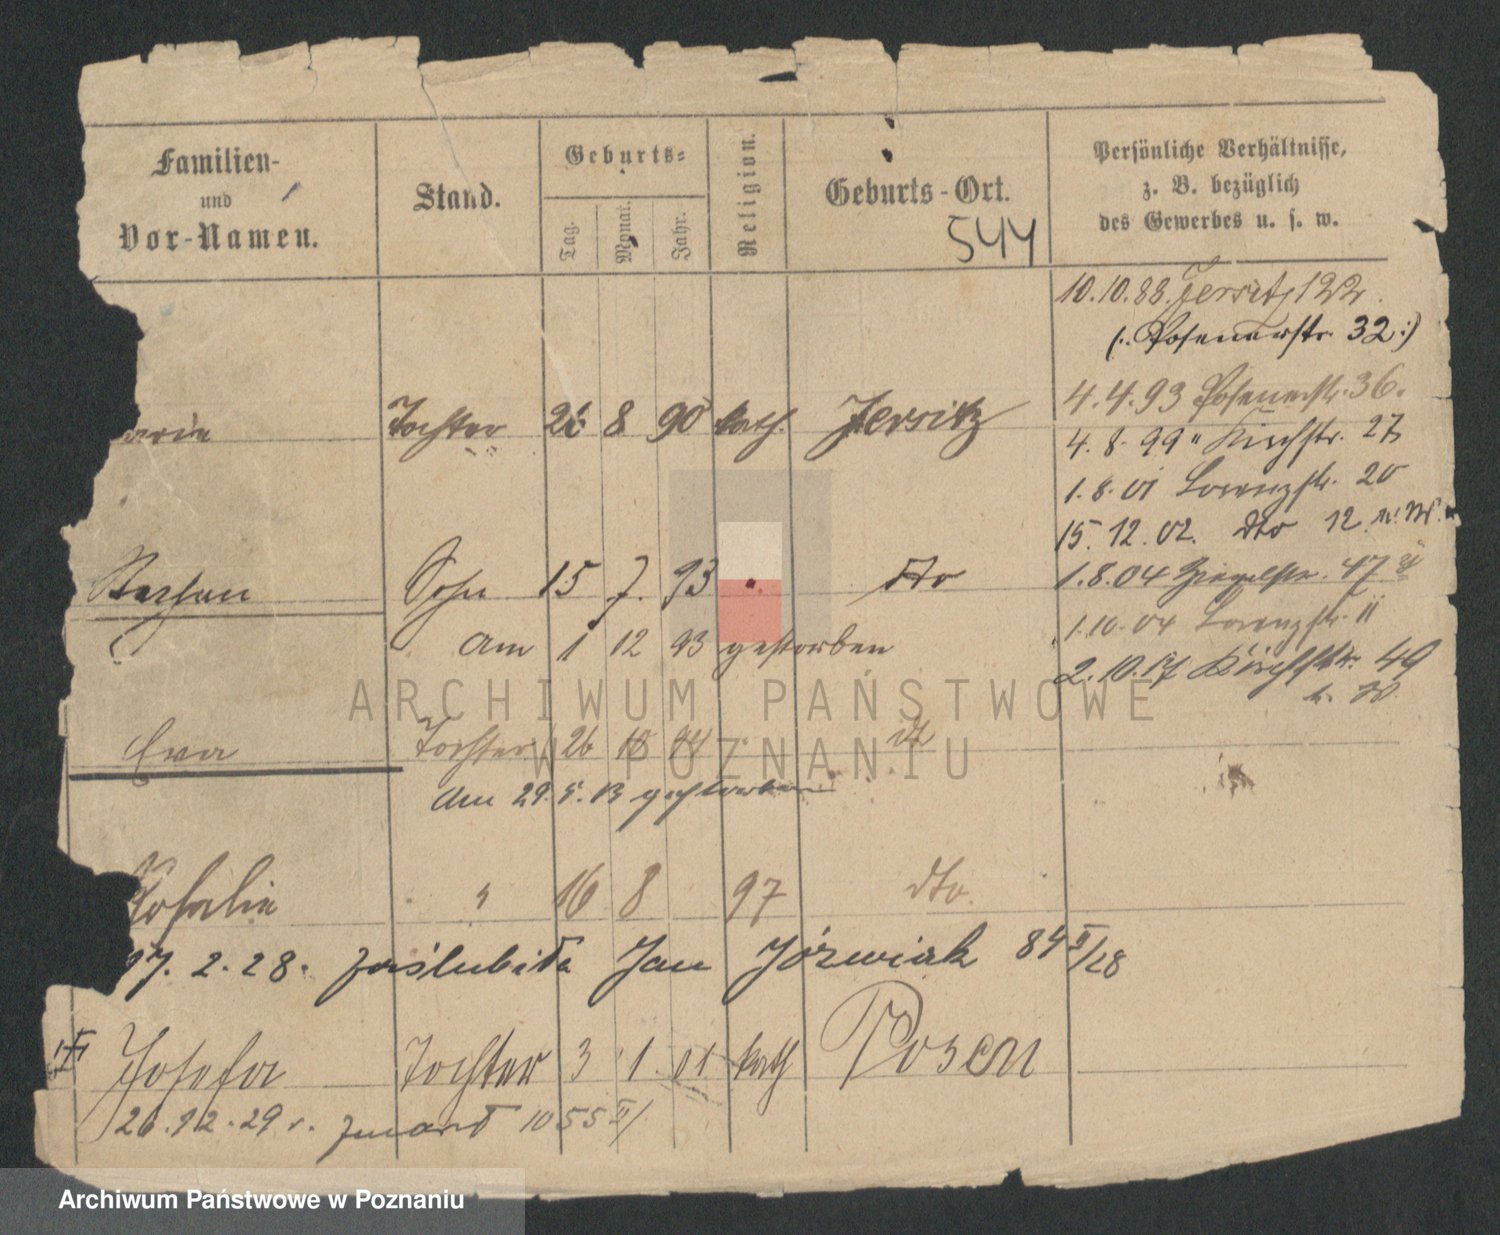 Familien-
und
Vor-Namen.
Stand.
Geburts-
Tag.
Monat.
Jahr.
Religion.
Geburts-Ort.
544
Persönliche Verhältnisse,
z. B. bezüglich
des Gewerbes u. s. w.
10.10.88. Jersitz 122.
(: Posenerstr. 32 :)
4.4.93 Posenerstr. 36.
arie Tochter 26 8 90 kath. Jersitz
4.8.99 " Kirchstr. 27
1.8.01 Lorenzstr. 20
15.12.02. dto 12
Stephan Sohn 15 7. 93 " dto
1.8.04 Ziegelstr. 47
am 1 12 93 gestorben
1.10.04 Lorenzstr. 11
2.10.17 Kirchstr. 49
Eva Tochter 26 dt
am 29.5.13 gestorben
Rosalie " 16 8 97 dto.
17.2.28. zaślubiła Jan Jóźwiak 84 II/28
Josefa Tochter 3 1 01 kath Posen
26.12.29 r. zmarł 1055 II/
ARCHIWUM PAŃSTWOWE
W POZNANIU
Archiwum Państwowe w Poznaniu